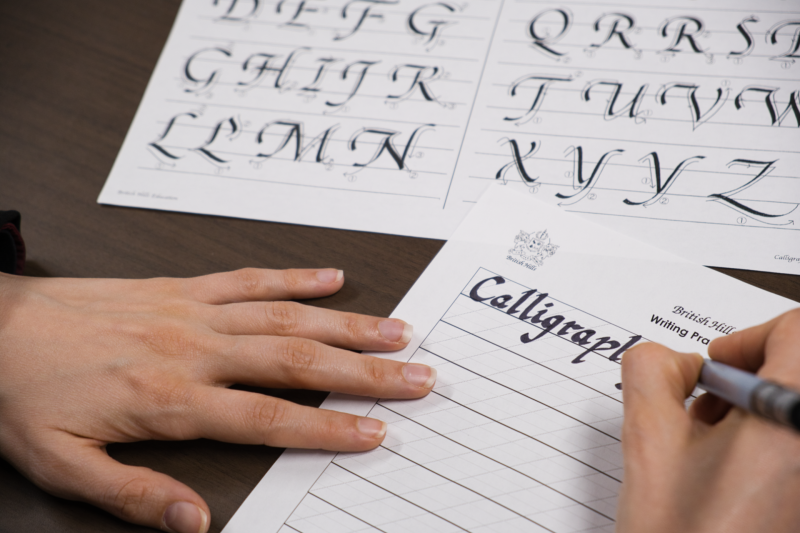 D E F G
G H I J K
L L M N
British Hills Education
Q R R S
T U V W
X Y Y Z
Calligra
British Hills
British Hills
Writing Pra
Calligraph